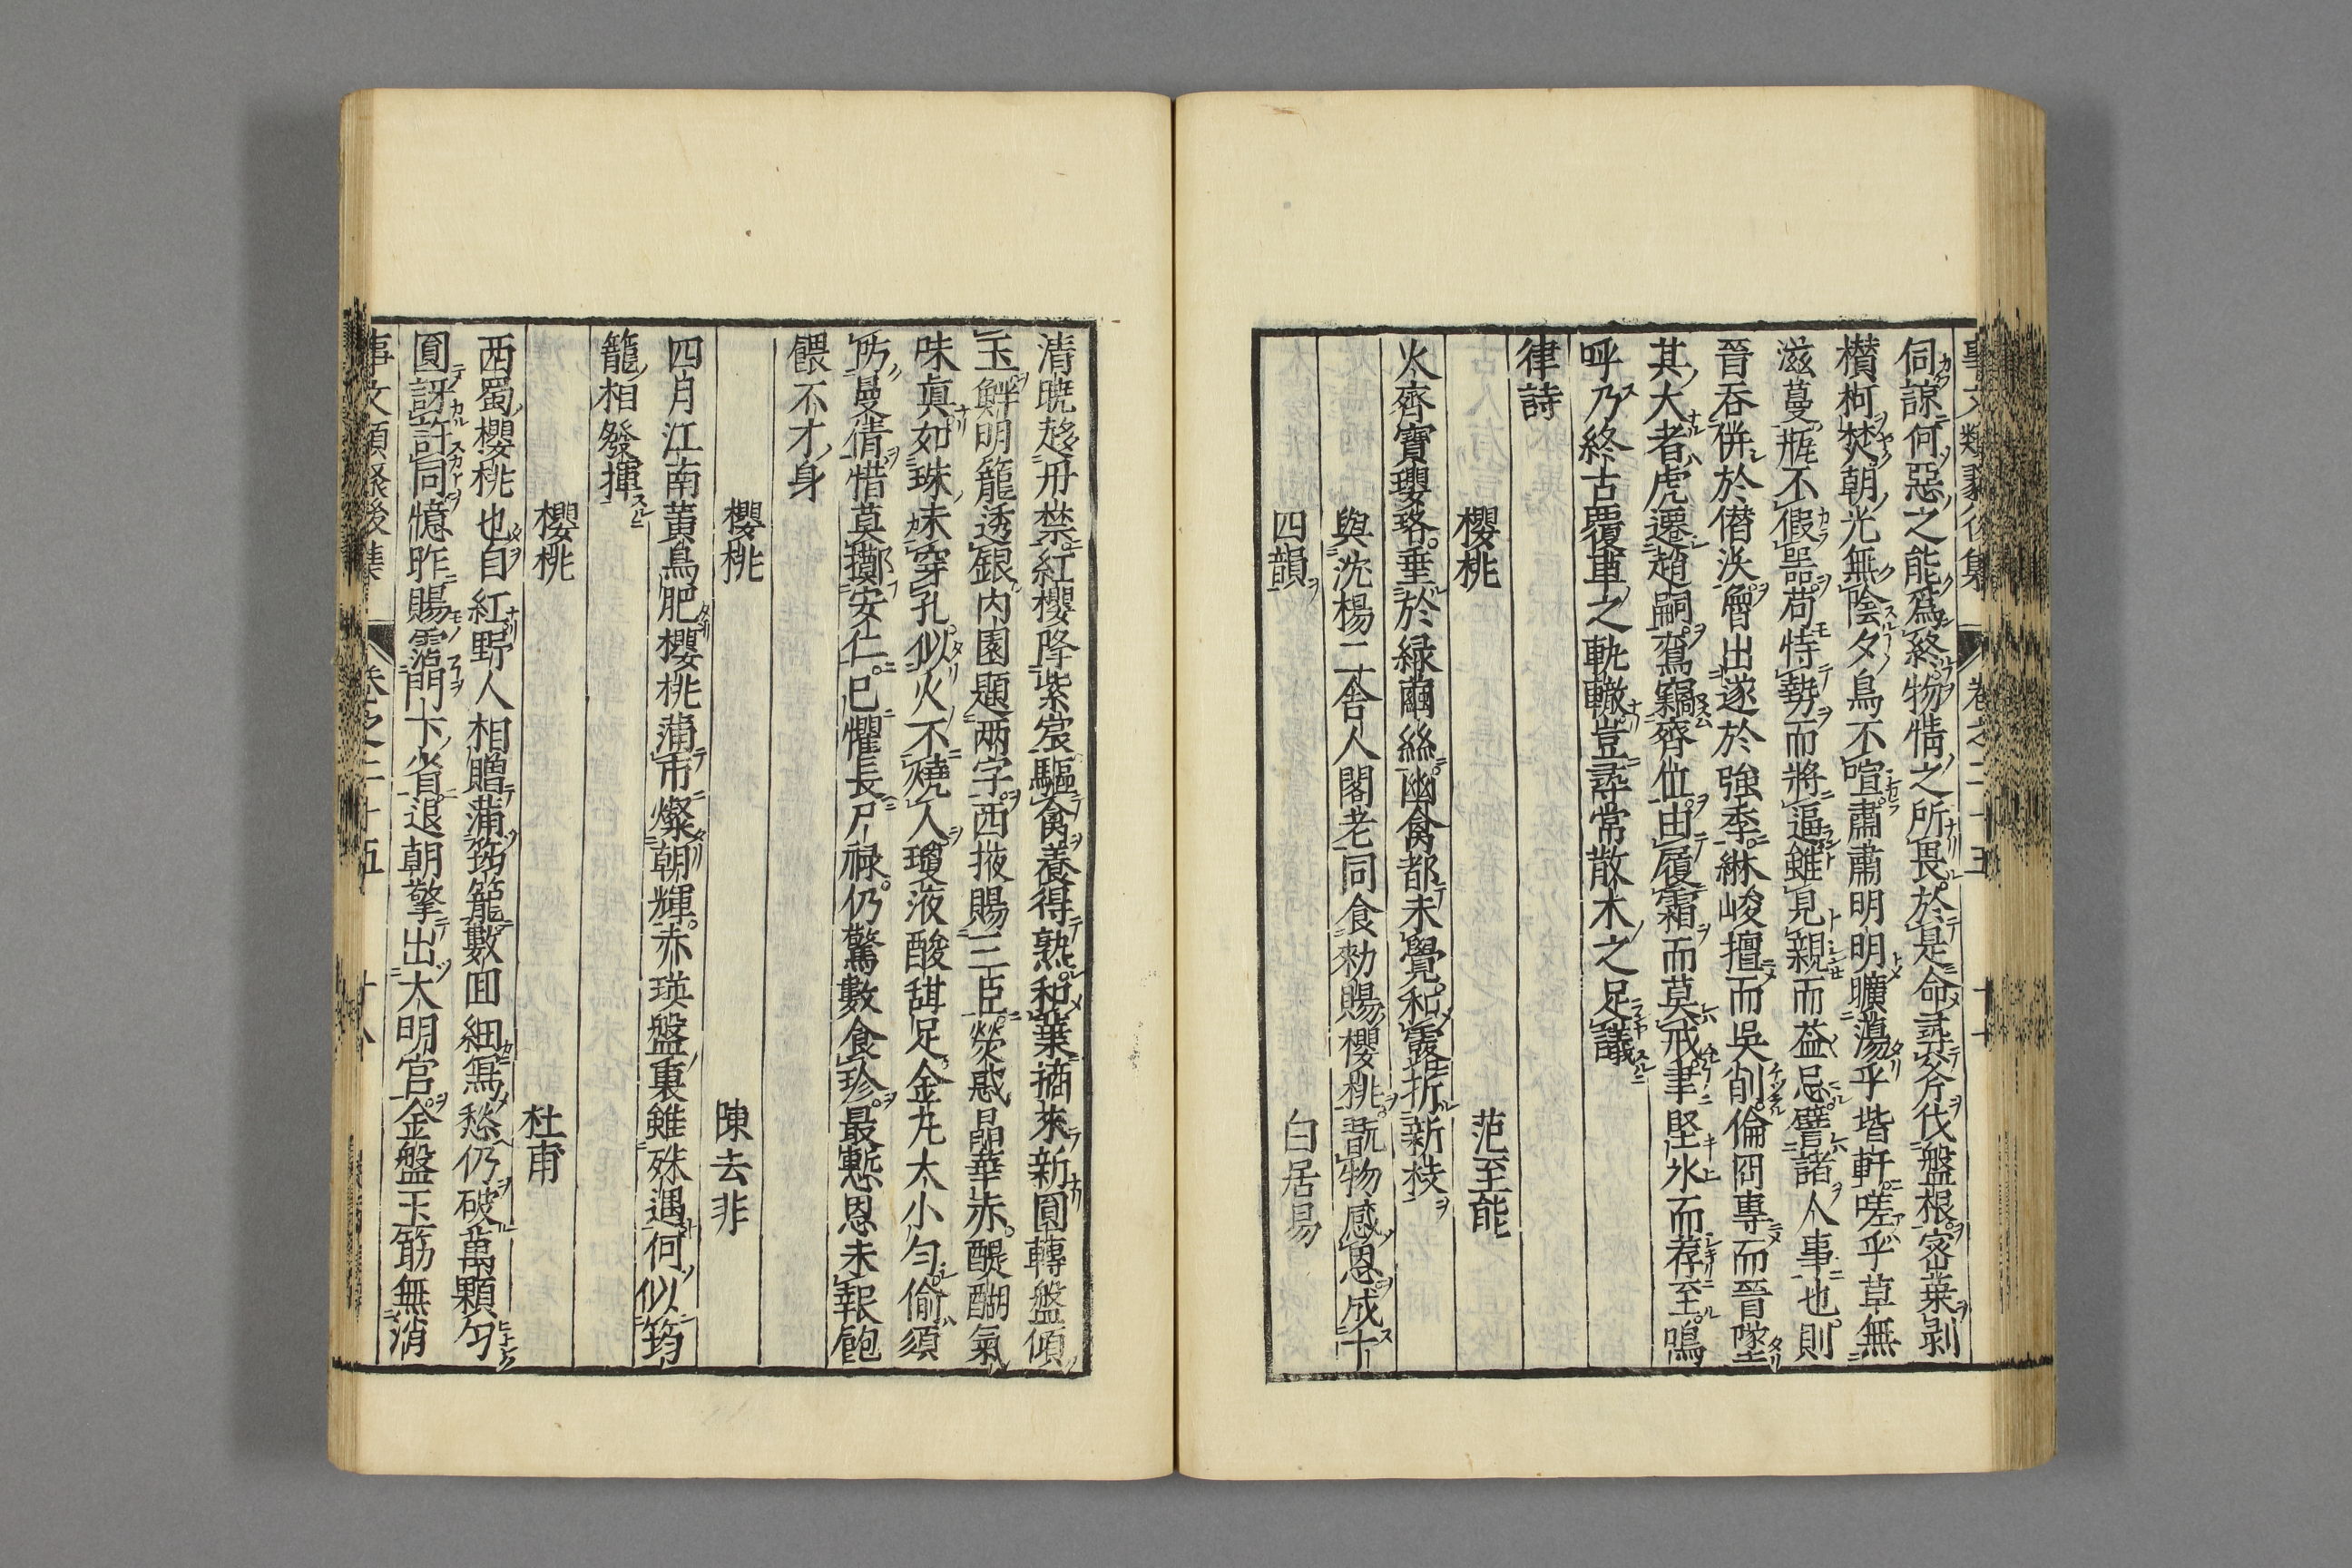 事文類聚後集 卷之二十五 十七
伺諒何惡之能爲終物情之所畏於是命尋斧伐盤根密葉剥
櫕柯焚朝光無陰夕鳥不喧肅肅明明曠蕩乎堦軒嗟乎草無
滋蔓瓶不假噐苟恃勢而將逼雖見親而益忌譬諸人事也則
晉吞併於僣渙魯出遂於強季緋峻擅而吳削倫冏專而晉墜
其大者虎遷趙嗣鸞竊齊位由履霜而莫戒聿堅氷而荐至嗚
呼乃終古覆車之軌轍豈尋常散木之足議
律詩
櫻桃 范至能
火齊寶瓔珞垂於緑繭絲幽禽都未覺和露折新枝
與沈楊二舍人閣老同食勑賜櫻桃翫物感恩成十
四韻 白居易
清曉趍丹禁紅櫻降紫宸驅禽養得熟和葉摘來新圓轉盤傾
玉鮮明籠透銀内園題兩字西掖賜三臣熒惑晶華赤醍醐氣
味眞如珠未穿孔似火不燒人瓊液酸甜足金丸大小勻偷須
防曼倩惜莫擲安仁已懼長尸祿仍驚數食珍最慙恩未報飽
餵不才身
櫻桃 陳去非
四月江南黄鳥肥櫻桃蒲市燦朝輝赤瑛盤裏雖殊遇何似筠
籠相發揮
櫻桃 杜甫
西蜀櫻桃也自紅野人相贈蒲筠籠數囬細寫愁仍破萬顆匀
圓訝許同憶昨賜霑門下省退朝擎出大明宫金盤玉筯無消
事文類聚後集 卷之二十五 十八